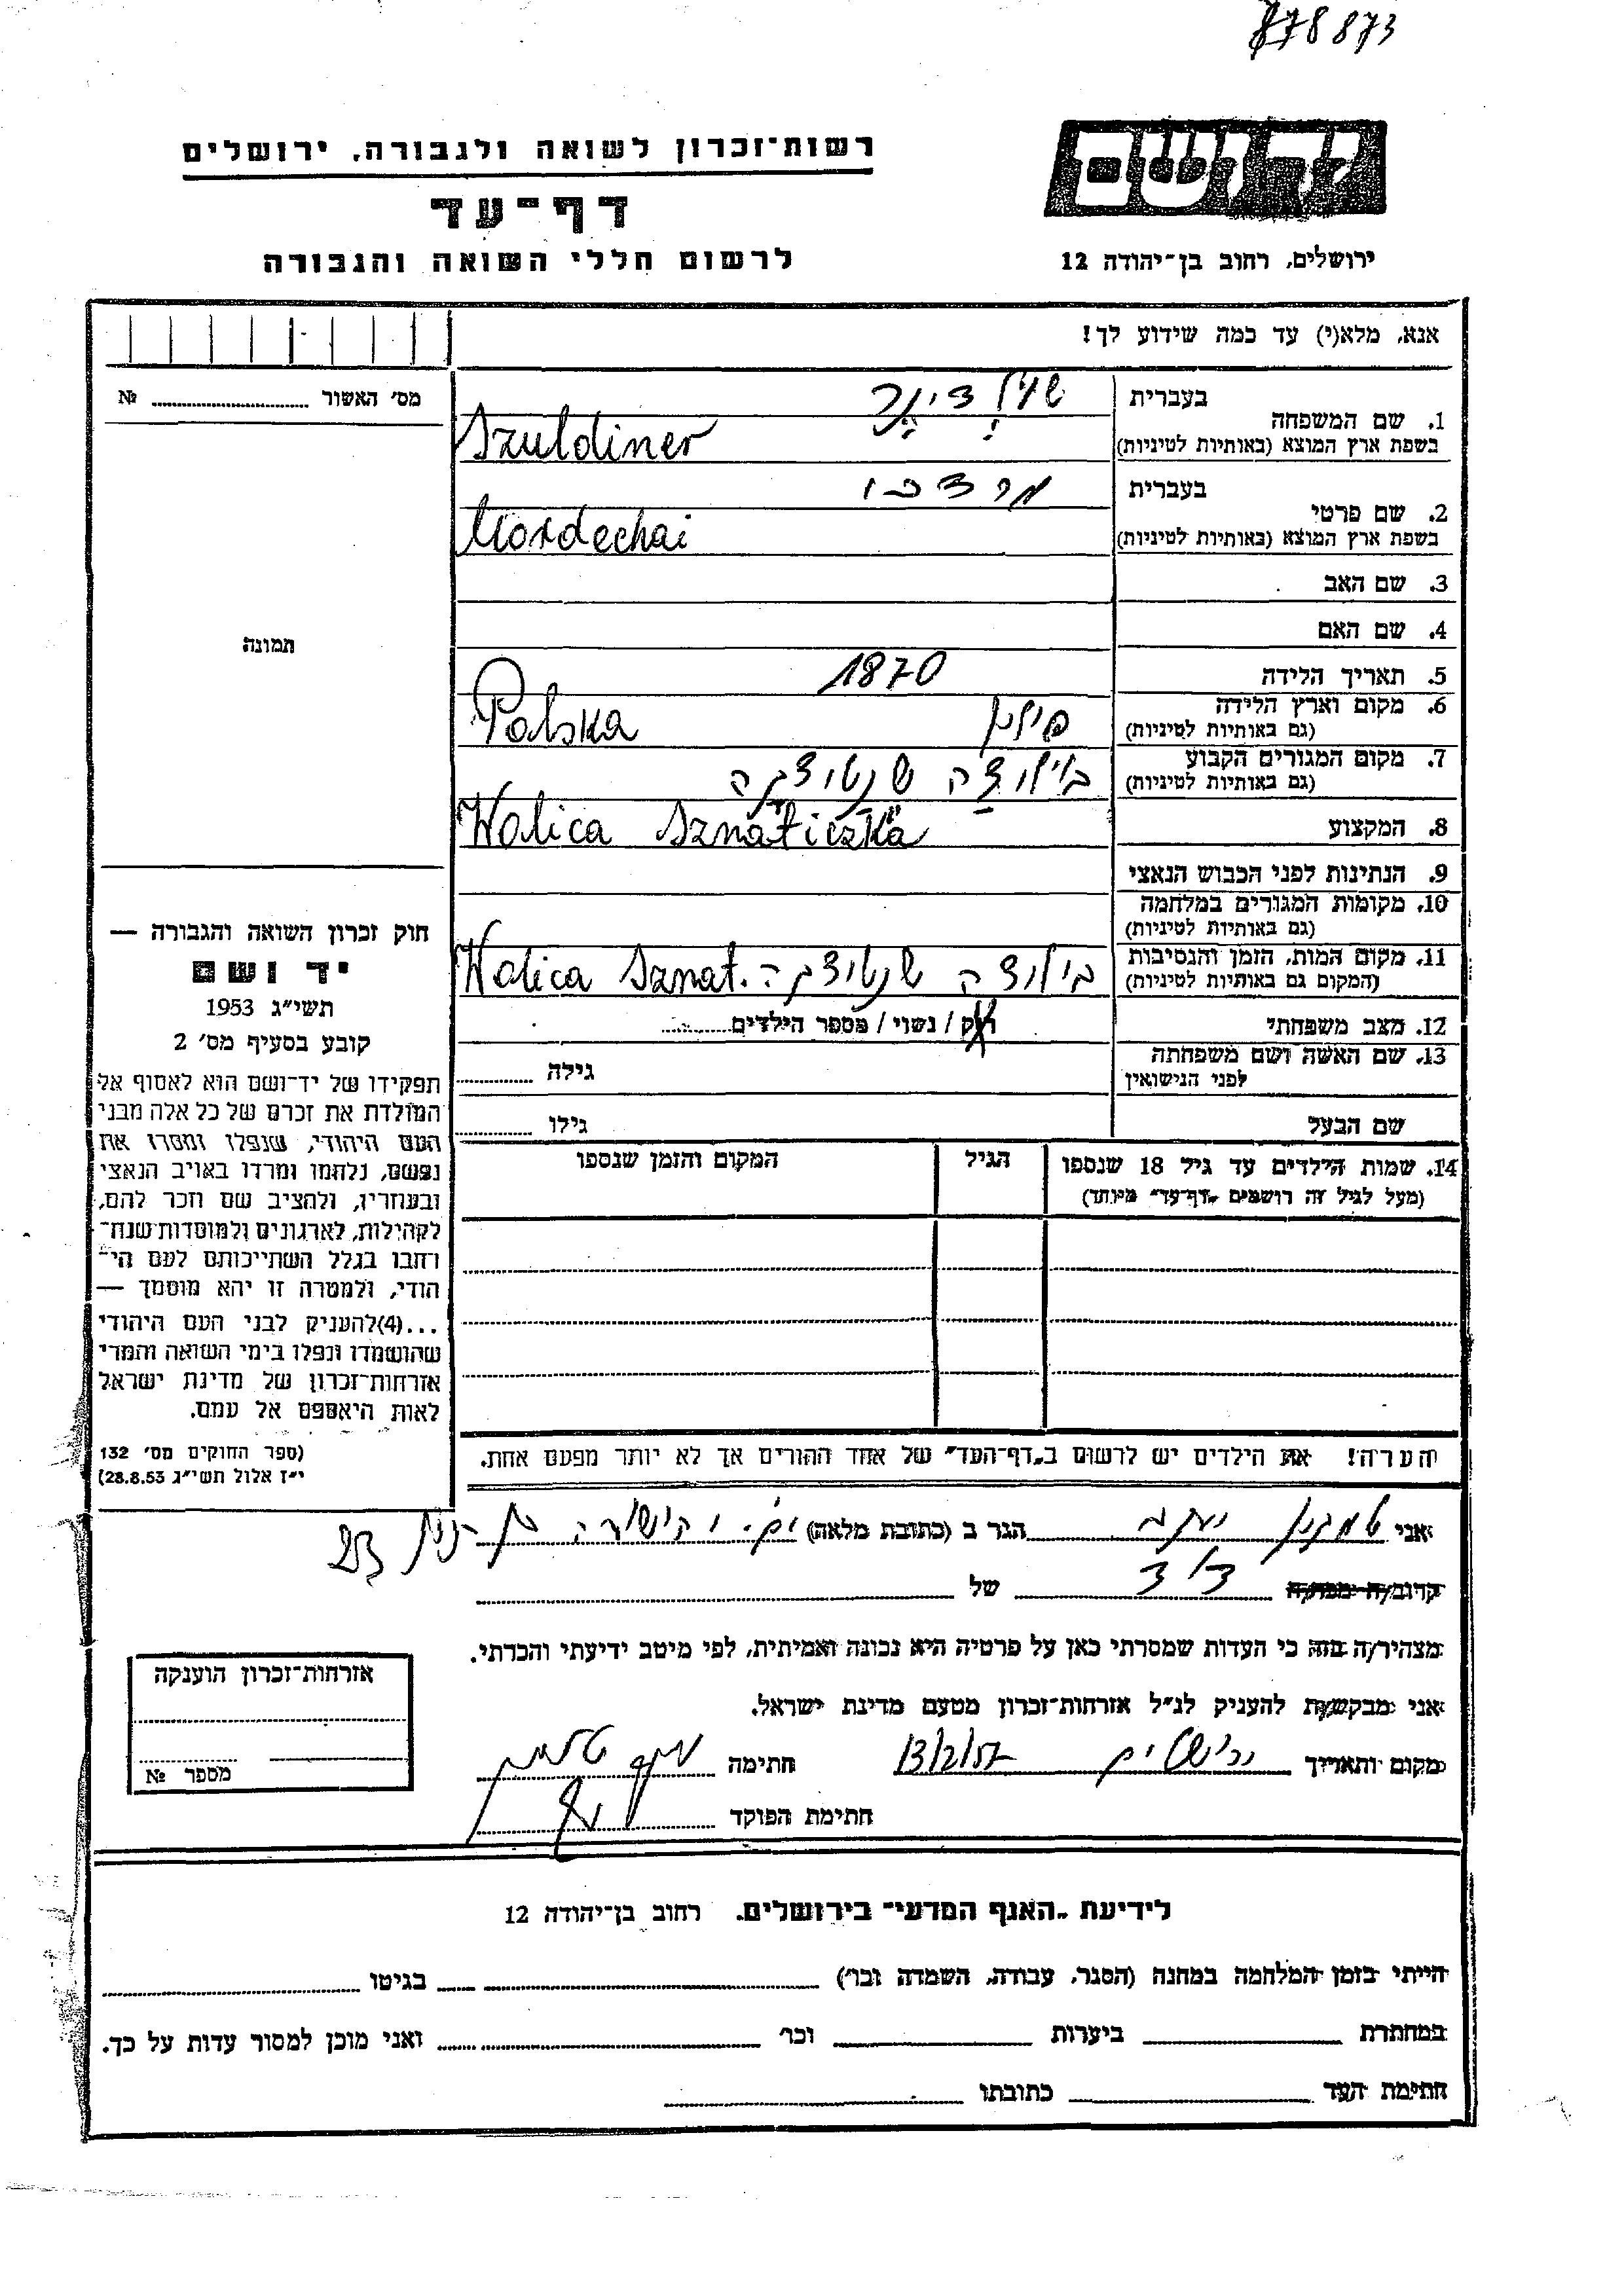 878873
יד ושם
רשות־זכרון לשואה ולגבורה, ירושלים
דף־עד
לרשום חללי השואה והגבורה
ירושלים, רחוב בן־יהודה 12
אנא, מלא(י) עד כמה שידוע לך!
מס' האשור № ..........
תמונה
1. שם המשפחה
בעברית שולדינר
בשפת ארץ המוצא (באותיות לטיניות) Szuldiner
2. שם פרטי
בעברית מרדכי
בשפת ארץ המוצא (באותיות לטיניות) Mordechai
3. שם האב
4. שם האם
5. תאריך הלידה 1870
6. מקום וארץ הלידה
(גם באותיות לטיניות) פולין Polska
7. מקום המגורים הקבוע
(גם באותיות לטיניות)
Wolica Sznaticzka
8. המקצוע
9. הנתינות לפני הכבוש הנאצי
10. מקומות המגורים במלחמה
(גם באותיות לטיניות)
11. מקום המות, הזמן והנסיבות
(המקום גם באותיות לטיניות) Wolica Sznat.
12. מצב משפחתי רוק / נשוי / מספר הילדים..........
13. שם האשה ושם משפחתה
לפני הנישואין גילה ..........
שם הבעל גילו ..........
14. שמות הילדים עד גיל 18 שנספו
(מעל לגיל זה רושמים „דף־עד" מיוחד)
הגיל
המקום והזמן שנספו
חוק זכרון השואה והגבורה —
יד ושם
תשי"ג 1953
קובע בסעיף מס' 2
תפקידו של יד־ושם הוא לאסוף אל
המולדת את זכרם של כל אלה מבני
העם היהודי, שנפלו ומסרו את
נפשם, נלחמו ומרדו באויב הנאצי
ובעוזריו, ולהציב שם וזכר להם,
לקהילות, לארגונים ולמוסדות שנח־
רבו בגלל השתייכותם לעם הי־
הודי, ולמטרה זו יהא מוסמך —
...(4)להעניק לבני העם היהודי
שהושמדו ונפלו בימי השואה והמרי
אזרחות־זכרון של מדינת ישראל
לאות היאספם אל עמם.
(ספר החוקים מס' 132
י"ז אלול תשי"ג 28.8.53)
הערה! את הילדים יש לרשום ב„דף־העד" של אחד ההורים אך לא יותר מפעם אחת.
אני יעקב הגר ב (כתובת מלאה) 23
קרוב/ה מכר/ה דוד של ..........
מצהיר/ה בזה כי העדות שמסרתי כאן על פרטיה היא נכונה ואמיתית, לפי מיטב ידיעתי והכרתי.
אני מבקש/ת להעניק לנ"ל אזרחות־זכרון מטעם מדינת ישראל.
מקום ותאריך ירושלים 13/2/57 חתימה
חתימת הפוקד
אזרחות־זכרון הוענקה
מספר №
לידיעת „האגף המדעי" בירושלים, רחוב בן־יהודה 12
הייתי בזמן המלחמה במחנה (הסגר, עבודה, השמדה וכו') .......... בגיטו ..........
במחתרת .......... ביערות .......... וכו' .......... ואני מוכן למסור עדות על כך.
חתימת העד .......... כתובתו ..........